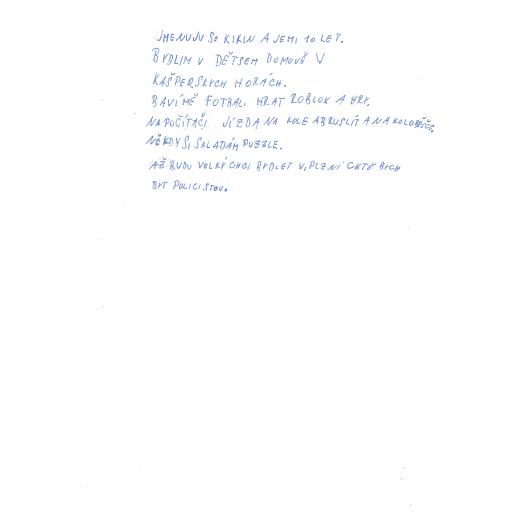 JMENUJU SE KIRIN A JEMI 10 LET.
BYDLIM V DĚTSEM DOMOVĚ V
KAŠPERSKYCH HORÁCH.
BAVÍ MĚ FOTBAL HRAT ROBLOX A HRY.
NA POČÍTAČI JÍZDA NA KOLE A BRUSLÍT A NA KOLOBĚČE.
NĚKDY SI SKLADÁM PUZZLE.
AŽ BUDU VELKÝ CHCI BYDLET V PLZNI CHTĚ BYCH
BYT POLICISTOU.